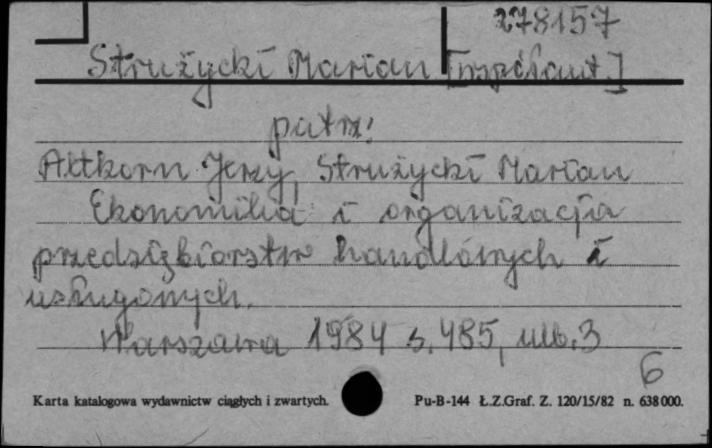 278157
Strużycki Marian [współaut.]
patrz:
Altkorn Jerzy, Strużycki Marian
Ekonomika i organizacja
przedsiębiorstw handlowych i
usługowych.
Warszawa 1984 s. 485, nlb. 3
6
Karta katalogowa wydawnictw ciągłych i zwartych.
Pu-B-144 Ł.Z.Graf. Z. 120/15/82 n. 638000.